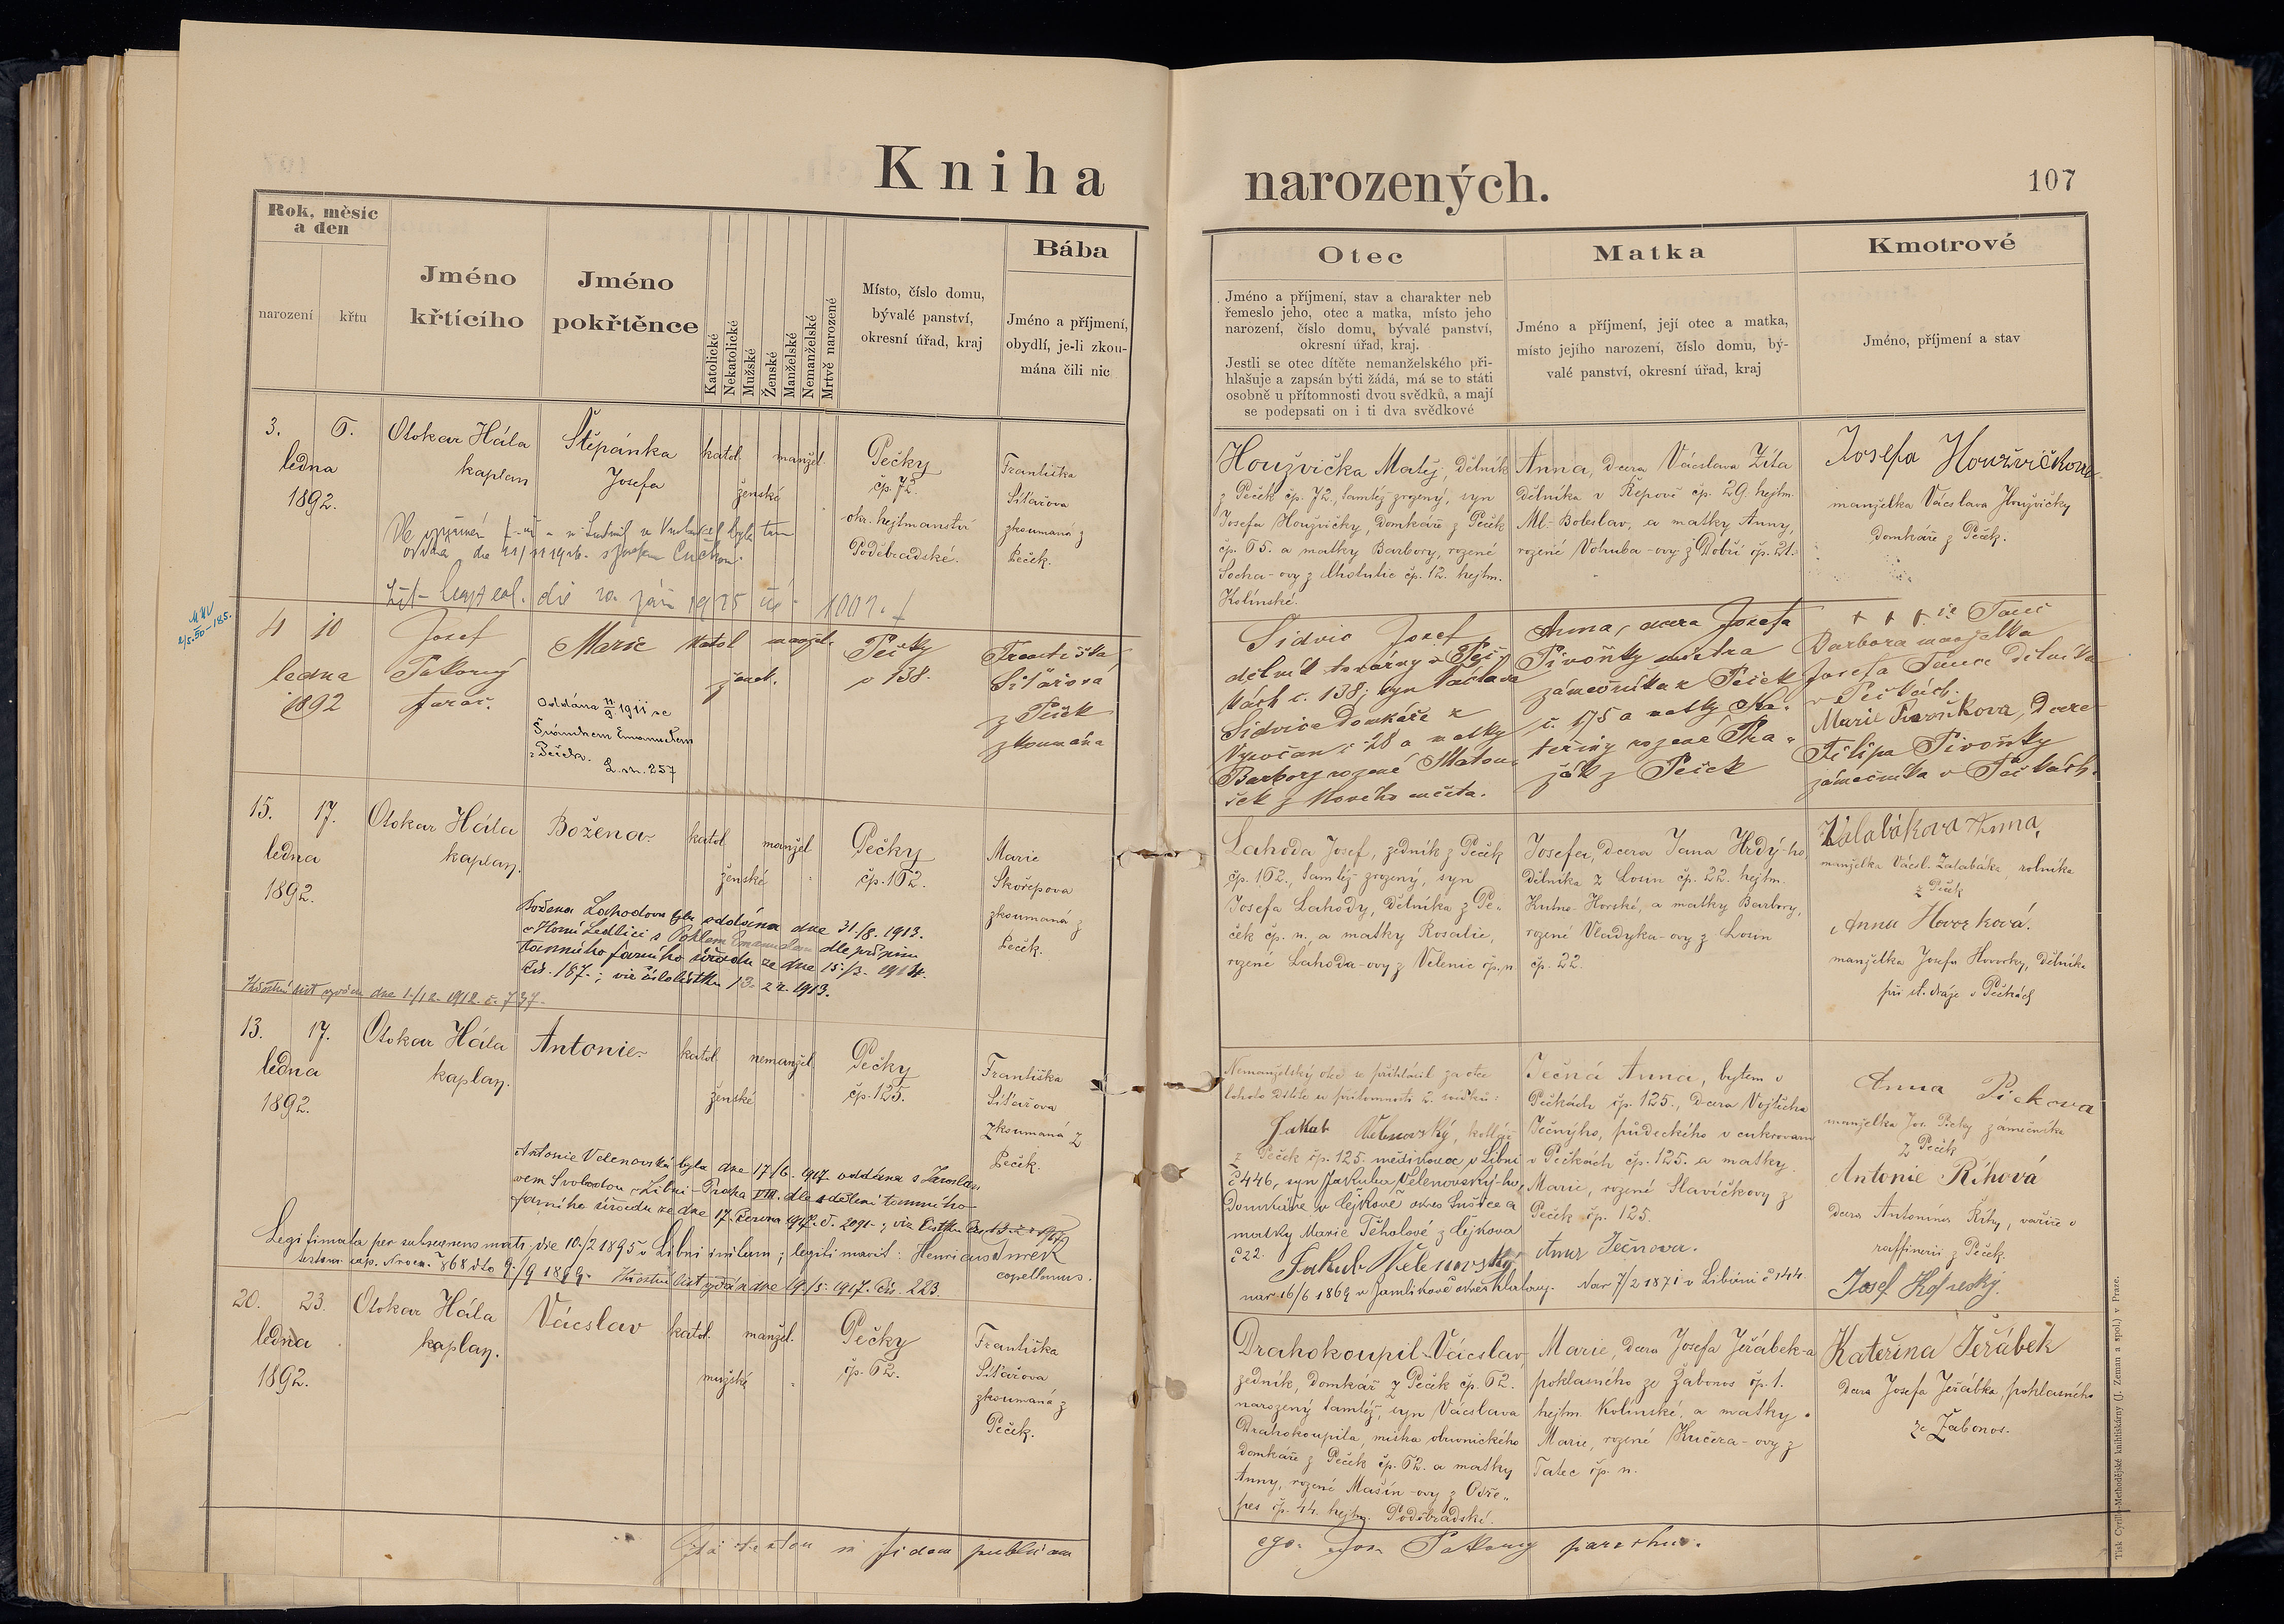 Kniha narozených.
107
Rok, měsíc
a den
narození
křtu
Jméno
křtícího
Jméno
pokřtěnce
Katolické
Nekatolické
Mužské
Ženské
Manželské
Nemanželské
Mrtvě narozené
Místo, číslo domu,
bývalé panství,
okresní úřad, kraj
Bába
Jméno a příjmení,
obydlí, je-li zkou-
mána čili nic
Otec
Jméno a příjmení, stav a charakter neb
řemeslo jeho, otec a matka, místo jeho
narození, číslo domu, bývalé panství,
okresní úřad, kraj.
Jestli se otec dítěte nemanželského při-
hlašuje a zapsán býti žádá, má se to státi
osobně u přítomnosti dvou svědků, a mají
se podepsati on i ti dva svědkové
Matka
Jméno a příjmení, její otec a matka,
místo jejího narození, číslo domu, bý-
valé panství, okresní úřad, kraj
Kmotrové
Jméno, příjmení a stav
3. 6.
ledna
1892.
Otokar Hála
kaplan
Štěpánka
Josefa
katol. manžel.
ženské
Pečky
čp. 72.
okr. hejtmanství
Poděbradské.
Františka
Siťařova
zkoumaná z
Peček.
Houžvička Matěj, dělník
z Peček čp. 72., tamtéž zrozený, syn
Josefa Houžvičky, domkáře z Peček
čp. 65. a matky Barbory, rozené
Socha-ovy z Chotutic čp. 12. hejtm.
Kolínské.
Anna, dcera Václava Zíta
dělníka v Řepově čp. 29. hejtm.
Ml. Boleslav, a matky Anny,
rozené Vohuba-ovy z Dobří čp. 21.
Josefa Houžvičkova
manželka Václava Houžvičky
domkáře z Peček.
4 10
ledna
1892
Josef
Pokorný
farář.
Marie
katol manžel.
žensk.
Pečky
č 138.
Františka
Siťařová
z Peček
zkoumána
Oddána 11/9 1911 se
Švándrem Emanuelem
z Peček. L. m. 257
Sidvic Josef
dělník továrny v Peč-
kách č. 138; syn Václava
Sidvice domkáře z
Vysočan č 28 a matky
Barbory rozené Matou-
šek z Nového města.
Anna, dcera Josefa
Pivoňky mistra
zámečníka z Peček
č. 175 a matky Ka-
teřiny rozené Pra-
žák z Peček
Barbora manželka
Josefa Tance dělníka
v Pečkách.
Marie Pivoňkova, dcera
Filipa Pivoňky
zámečníka v Pečkách.
15. 17.
ledna
1892.
Otokar Hála
kaplan.
Božena
katol manžel
ženské
Pečky
čp. 162.
Marie
Skořepova
zkoumaná z
Peček.
Božena Lahodova byla oddána dne 31./8. 1913.
tamního farního úřadu ze dne
Křestní list vydán dne 1./12. 1912. č. 737.
Lahoda Josef, zedník z Peček
čp. 162., tamtéž zrozený, syn
Josefa Lahody, dělníka z Pe-
ček čp. n., a matky Rosalie,
rozené Lahoda-ovy z Velenic čp. n
Josefa, dcera Jana Hrdý-ho
dělníka z Losin čp. 22. hejtm.
Kutno-Horské, a matky Barbory,
rozené Vladyka-ovy z Losin
čp. 22.
Zalabákova Anna,
manželka Václ. Zalabáka, rolníka
z Peček
Anna Hovorková.
manželka Josefa Hovorky, dělníka
při st. dráze v Pečkách
13. 17.
ledna
1892.
Otokar Hála
kaplan.
Antonie
katol. nemanžel
ženské
Pečky
čp. 125.
Františka
Siťařova
zkoumaná z
Peček.
Antonie Velenovská byla dne 17./6. 1917. oddána s Jarosla-
vem Svobodou v Libni-Praha VIII. dle sdělení tamního
farního úřadu ze dne 17. června 1917.
Legitimata per subsequens matr. die 10./2 1895 v Libni initum; legitimavit: Henricus Šimek
capellanus.
Křestní list vydán dne 19./5. 1917. čís. 223.
Nemanželský otec se přihlásil za otce
tohoto dítěte u přítomnosti 2. svědků:
Jakub Velenovský, kotlář
z Peček čp. 125. mědikovec v Libni
č 446, syn Jakuba Velenovský-ho,
domkáře v Čejkově okres Sušice a
matky Marie Těholové z Čejkova
č 22.
Jakub Velenovský
nar. 16/6 1869 v Jamlikově okres Klatovy.
Ječná Anna, bytem v
Pečkách čp. 125., dcera Vojtěcha
Ječnýho, půdeckého v cukrovaru
v Pečkách čp. 125. a matky
Marie, rozené Slavíčkovy z
Peček čp. 125.
Anna Ječnova.
Nar 7/2 1871 v Libini č 144.
Anna Pickova
manželka Jos. Picky zámečníka
z Peček
Antonie Říhová
dcera Antonína Říhy, vařiče v
raffinerii z Peček.
20. 23.
ledna
1892.
Otokar Hála
kaplan.
Vácslav
katol. manžel.
mužské
Pečky
čp. 62.
Františka
Siťařova
zkoumaná z
Peček.
Drahokoupil Vácslav,
zedník, domkář z Peček čp. 62.
narozený tamtéž, syn Vácslava
Drahokoupila, mistra obuvnického
domkáře z Peček čp. 62. a matky
Anny, rozené Mašín-ovy z Odře-
pes čp. 44. hejtm. Poděbradské.
Marie, dcera Josefa Jeřábek-a
poklasného ze Žabonos čp. 1.
hejtm. Kolínské, a matky
Marie, rozené Kučera-ovy z
Tatec čp. n.
Kateřina Jeřábek
dcera Josefa Jeřábka, poklasného
ze Žabonos.
Ita testor in fidem publicam
ego Jos. Pokorny parochus.
Tisk Cyrillo-Methodějské knihtiskárny (J. Zeman a spol.) v Praze.